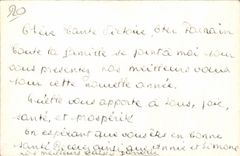 20
Chère Tante Victoire, Cher Parrain
Toute la famille se joint à moi pour
vous présenter nos meilleurs voeux
pour cette nouvelle année.
Qu'elle vous apporte à tous, joie,
santé, et prospérité
En espérant que vous êtes en bonne
santé
ainsi que
et Simone
nos meilleurs